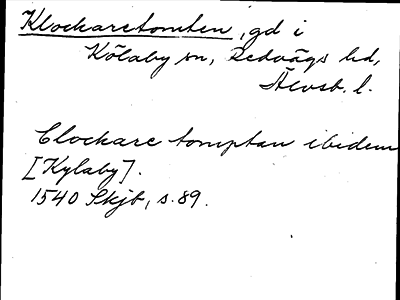 Klockaretomten, gd i
Kölaby sn, Redvägs hd,
Älvsb. l.
Clockare tomptan ibidem
[Kylaby].
1540 Skjb, s. 89.